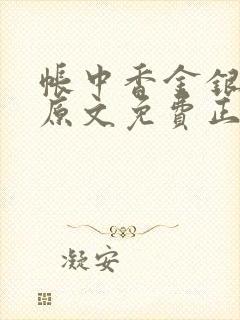 帳中香金銀
原文免費正
凝安